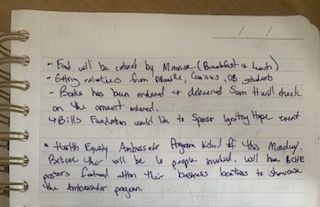 - Food will be catered by (Breakfast & lunch)
- Getting volunteers from students
- Books has been ordered & delivered Sam H will check
on the amount ordered.
↳ Bills Fundation would like to Sponsor Igniting Hope event
• Health Equity Ambassador Program kicked off this Monday.
will be 6 people involved, will have BCHE
posters their business locations to showcase
the Ambassador program.